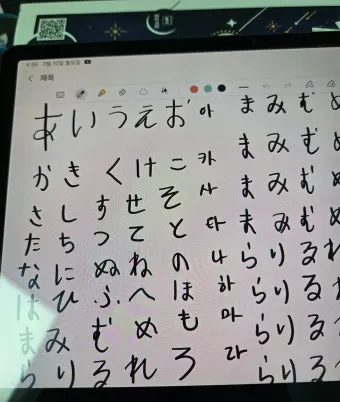 4:56 3월 10일 월요일
제목
あいうえお 아 まみむめ
かきくけこ 카 まみむめ
さしすせそ 사 まみむめ
たちつてと 타 まみむめ
なにぬねの 나 らりるれ
はひふへほ 하 らりる
まみむめも 마 らりる
らりるれろ 라 らりる